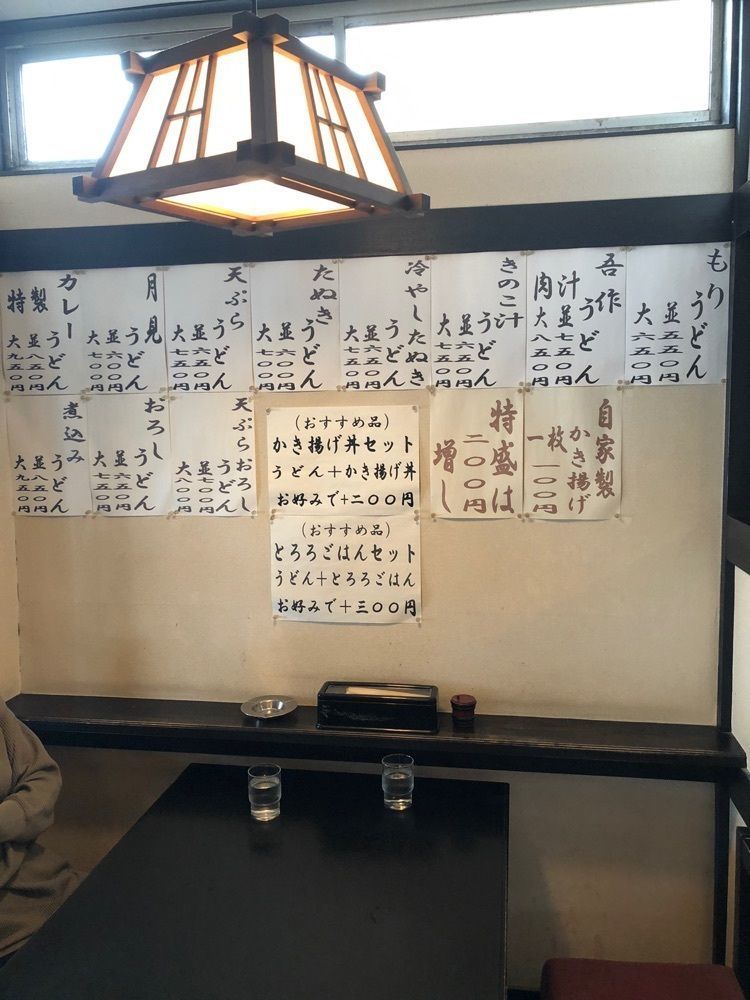 もり
うどん
並 五五〇円
大 六五〇円
吾作
うどん
肉汁
並 七五〇円
大 八五〇円
きのこ汁
うどん
並 六五〇円
大 七五〇円
冷やしたぬき
うどん
並 六五〇円
大 七五〇円
たぬき
うどん
並 六〇〇円
大 七〇〇円
天ぷら
うどん
並 六五〇円
大 七五〇円
月見
うどん
並 六五〇円
大 七〇〇円
カレー
うどん
特製
並 八五〇円
大 九五〇円
自家製
かき揚げ
一枚 一〇〇円
特盛は
二〇〇円
増し
(おすすめ品)
かき揚げ丼セット
うどん+かき揚げ丼
お好みで+二〇〇円
(おすすめ品)
とろろごはんセット
うどん+とろろごはん
お好みで+三〇〇円
天ぷらおろし
うどん
並 七〇〇円
大 八〇〇円
おろし
うどん
並 六五〇円
大 七五〇円
煮込み
うどん
並 八五〇円
大 九五〇円